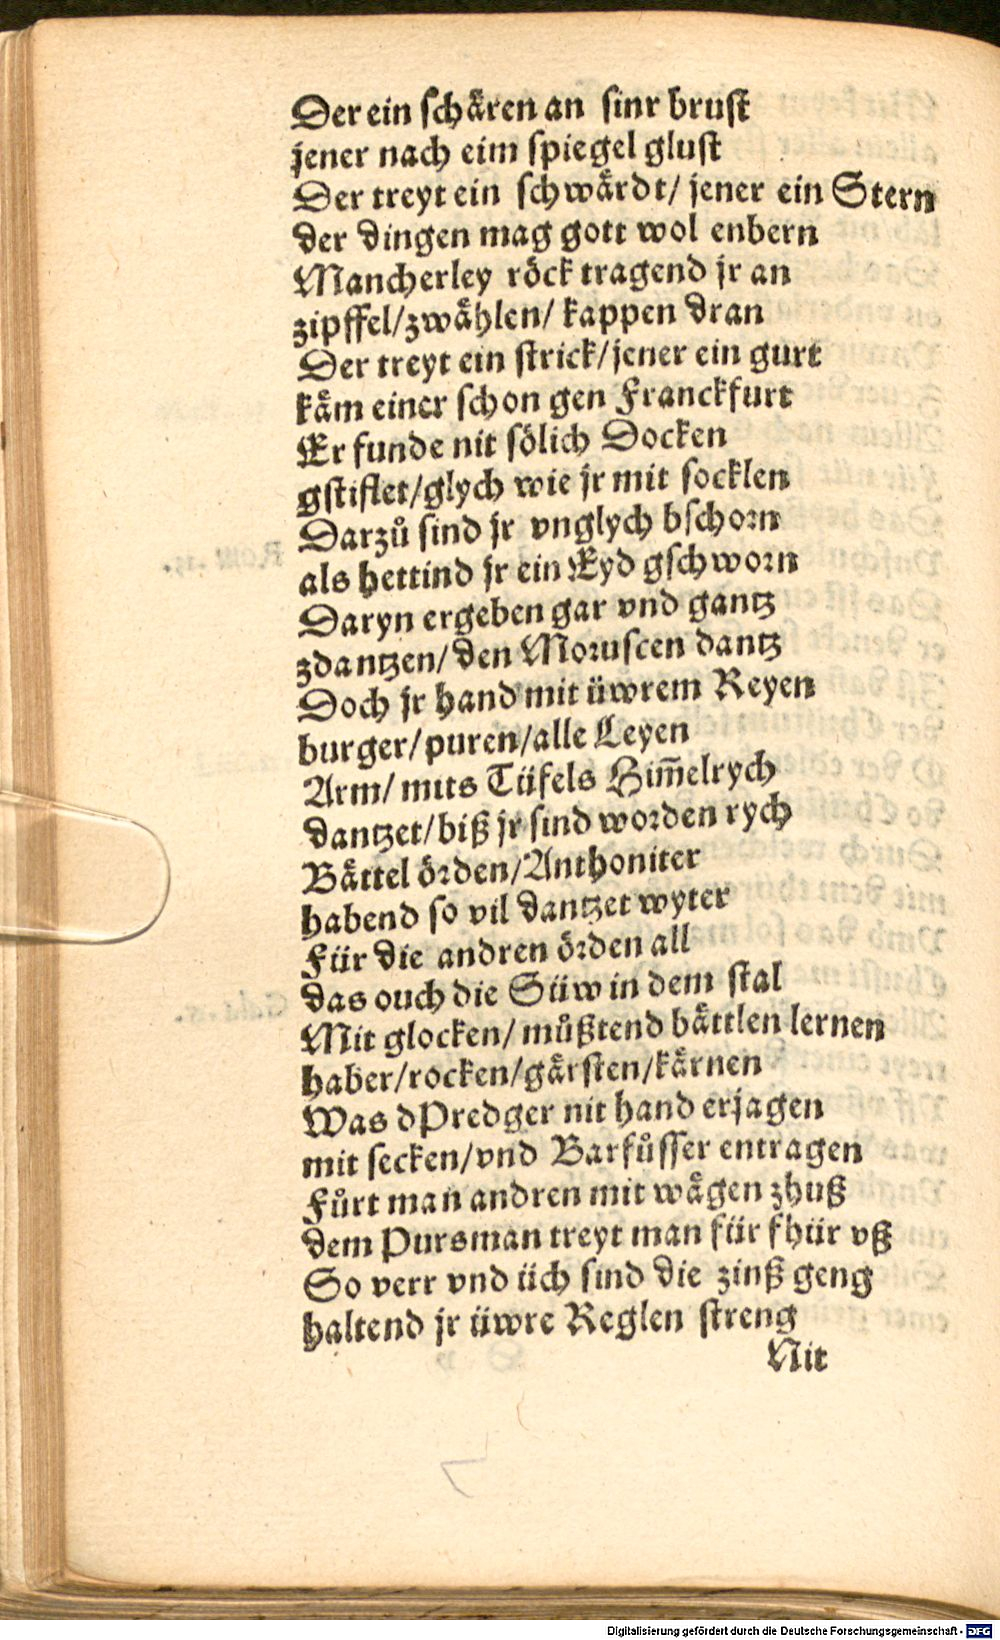 Der ein schären an sinr brust
jener nach eim spiegel glust
Der treyt ein schwärdt/ jener ein Stern
der dingen mag gott wol enbern
Mancherley röck tragend jr an
zipffel/zwählen/ kappen dran
Der treyt ein strick/jener ein gurt
käm einer schon gen Franckfurt
Er funde nit sölich Docken
gstiflet/glych wie jr mit socklen
Darzů sind jr vnglych bschorn
als hettind jr ein Eyd gschworn
Daryn ergeben gar vnd gantz
zdantzen/den Moruscen dantz
Doch jr hand mit üwrem Reyen
burger/puren/alle Leyen
Arm/ mits Tüfels Him̄elrych
dantzet/biß jr sind worden rych
Bättel örden/Anthoniter
habend so vil dantzet wyter
Für die andren örden all
das ouch die Süw in dem stal
Mit glocken/ můßtend bättlen lernen
haber/rocken/gärsten/kärnen
Was dPredger nit hand erjagen
mit secken/vnd Barfůsser entragen
Fůrt man andren mit wägen zhuß
dem Pursman treyt man für fhür vß
So verr vnd üch sind die zinß geng
haltend jr üwre Reglen streng
Nit
Digitalisierung gefördert durch die Deutsche Forschungsgemeinschaft - DFG